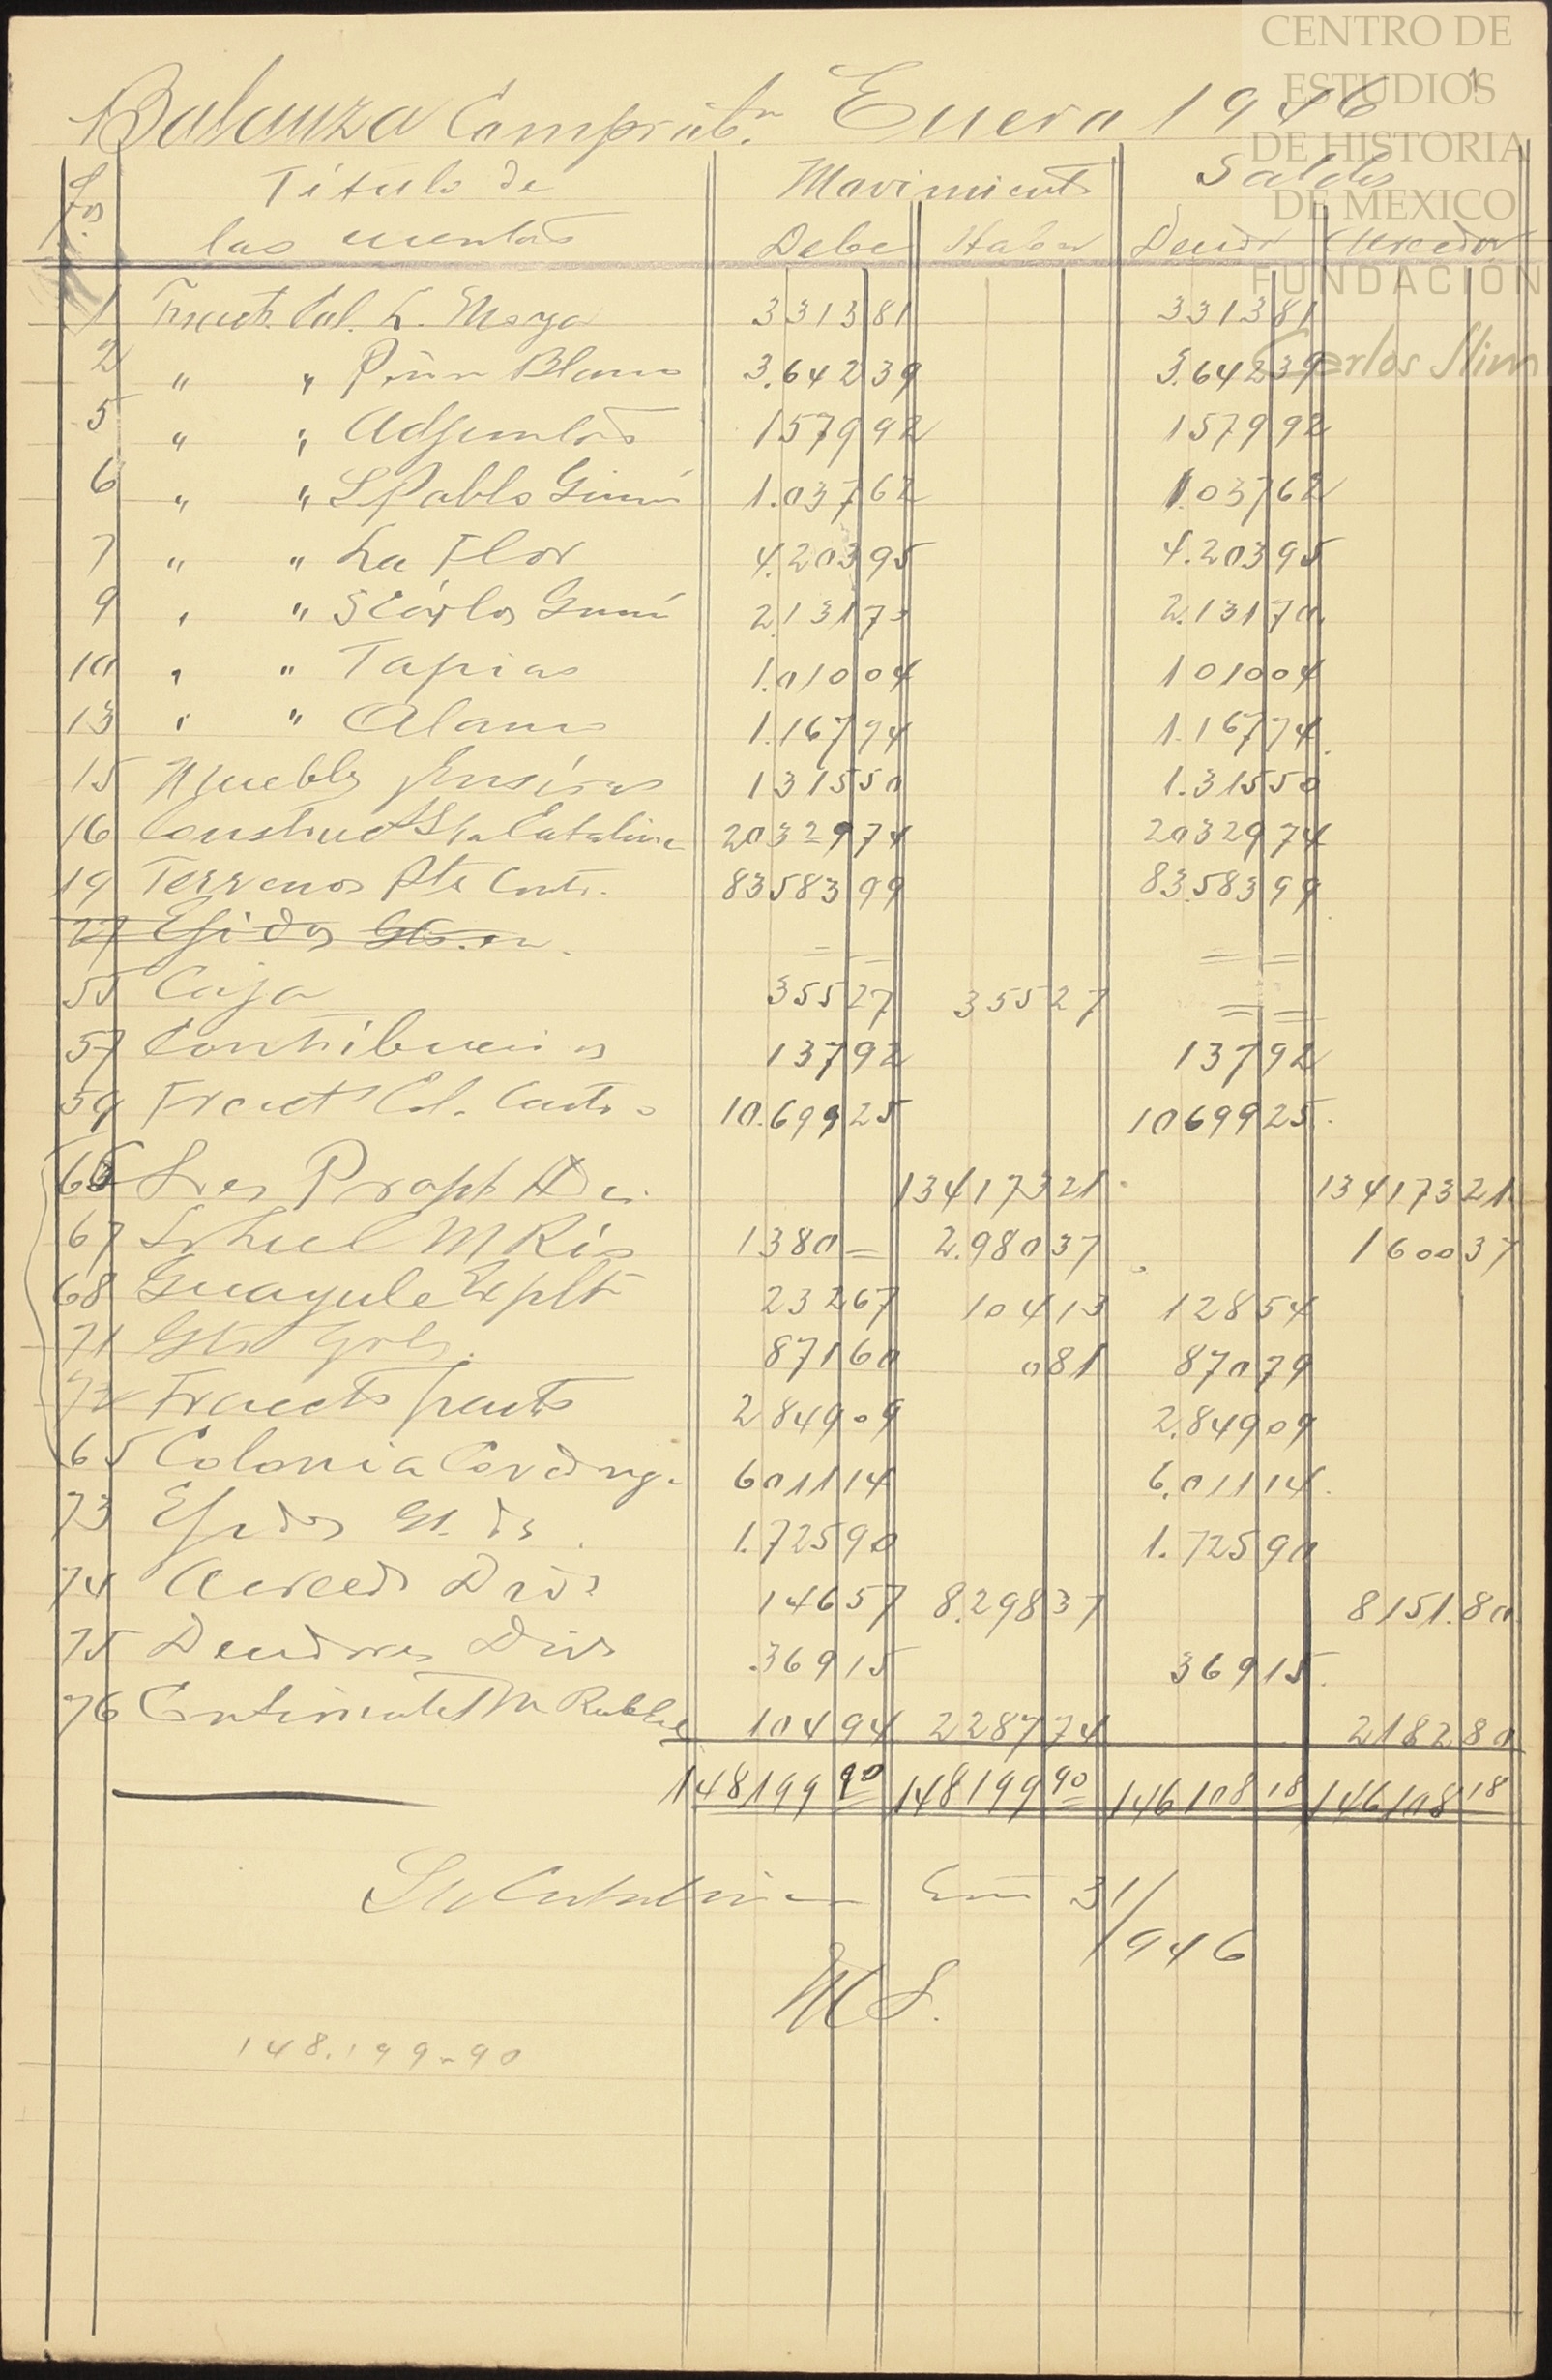 CENTRO DE
ESTUDIOS
DE HISTORIA
DE MEXICO
FUNDACIÓN
Carlos Slim
Balanza Comprobn. Enero 1946
Fos. Título de Movimiento Saldos
las cuentas Debe Haber Deudor Acreedor
1 Fracto. Col. L. Moya 3313 81 3313 81
2 " " Pino Blanco 3.642 39 3.642 39
5 " " Adjuntas 1579 92 1579 92
6 " " S Pablo 1.037 62 1.037 62
7 " " La Flor 4.203 95 4.203 95
9 " " S Cárlos 2.131 70 2.131 70
10 " " Tapias 1.010 04 1010 04
13 " " Alamo 1.167 74 1.167 74
15 Muebles 1315 50 1.315 50
16 Construct Sta Catalina 20329 74 20329 74
19 Terrenos Pte 83583 99 83.583 99
27 Ejidos = = = =
55 Caja 355 27 355 27 = =
57 Contribuciones 137 92 137 92
59 Fracto Col. 10.699 25 10699 25
66 Sres Propt 134173 21 134173 21
67 M Ríos 1380 = 2.980 37 1600 37
68 Guayule Explt 232 67 104 13 128 54
71 Gtos Grls. 871 60 0 81 870 79
72 Fracto 2849 09 2.849 09
65 Colonia 6011 14 6.011 14
73 Ejidos 1.725 90 1.725 90
74 Acreeds Divs 146 57 8.298 37 8151.80
75 Deudores Divs 369 15 369 15
76 M Robles 104 94 2287 74 2182 80
148199 90 148199 90 146108 18 146108 18
Sta Catalina Eno 31/946
148.199.90